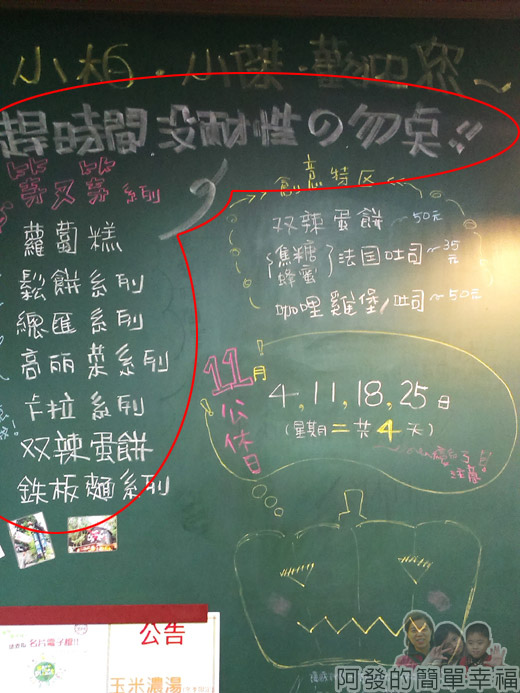 小柏·小傑·歡迎您~
趕時間、没耐性の勿点!!
系列
蘿蔔糕
鬆餅系列
總匯系列
高丽菜系列
卡拉系列
双辣蛋餅
鉄板麵系列
創意特区
双辣蛋餅 ~50元
焦糖
蜂蜜
法国吐司~35元
咖哩雞堡/吐司~50元
11月
公休日
4,11,18,25日
(星期二共4天)
注意
名片電子檔!!
公告
玉米濃湯
阿發的簡單幸福